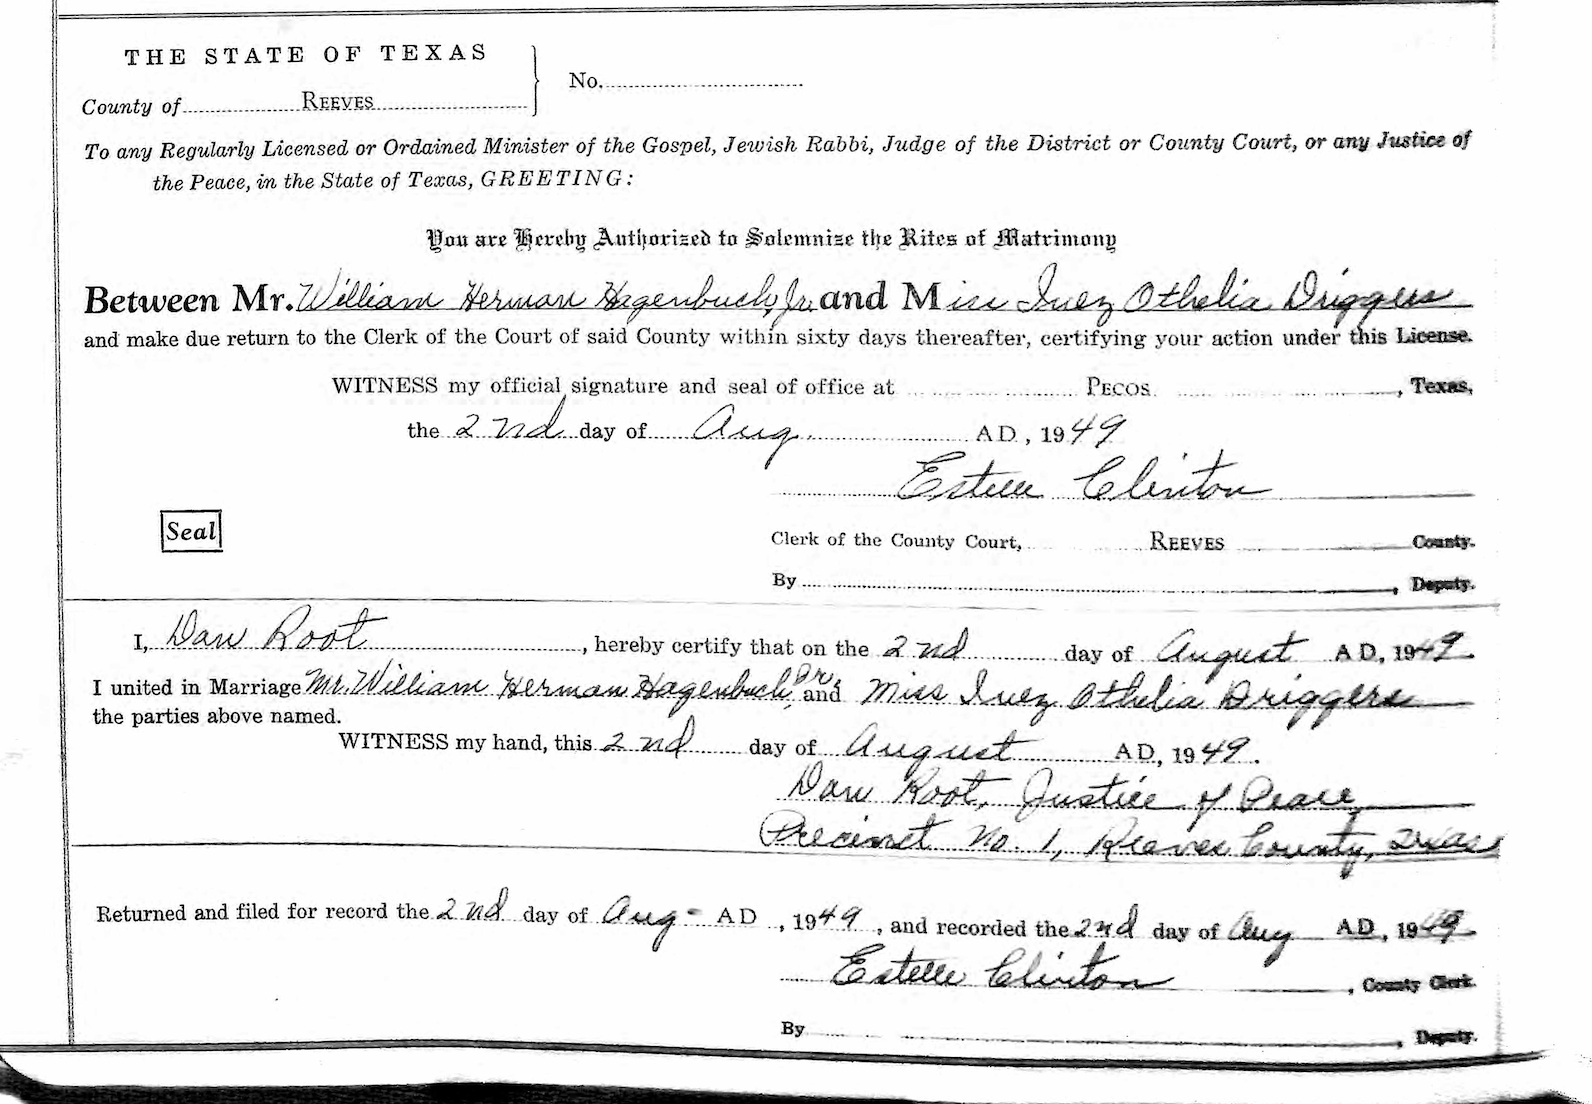 THE STATE OF TEXAS
County of Reeves
No.
To any Regularly Licensed or Ordained Minister of the Gospel, Jewish Rabbi, Judge of the District or County Court, or any Justice of
the Peace, in the State of Texas, GREETING:
You are Hereby Authorized to Solemnize the Rites of Matrimony
Between Mr. William Herman Hagenbuch, Jr. and Miss Inez Othelia Driggers
and make due return to the Clerk of the Court of said County within sixty days thereafter, certifying your action under this License.
WITNESS my official signature and seal of office at Pecos, Texas,
the 2nd day of Aug. A D , 1949
Estelle Clinton
Seal
Clerk of the County Court, Reeves County.
By , Deputy.
I, Dan Root, hereby certify that on the 2nd day of August A D, 1949.
I united in Marriage Mr. William Herman Hagenbuch, Jr. and Miss Inez Othelia Driggers
the parties above named.
WITNESS my hand, this 2nd day of August A D, 1949.
Dan Root, Justice of Peace,
Precinct No. 1, Reeves County, Texas
Returned and filed for record the 2nd day of Aug- A D , 1949 , and recorded the 2nd day of Aug A D , 1949.
Estelle Clinton, County Clerk.
By , Deputy.